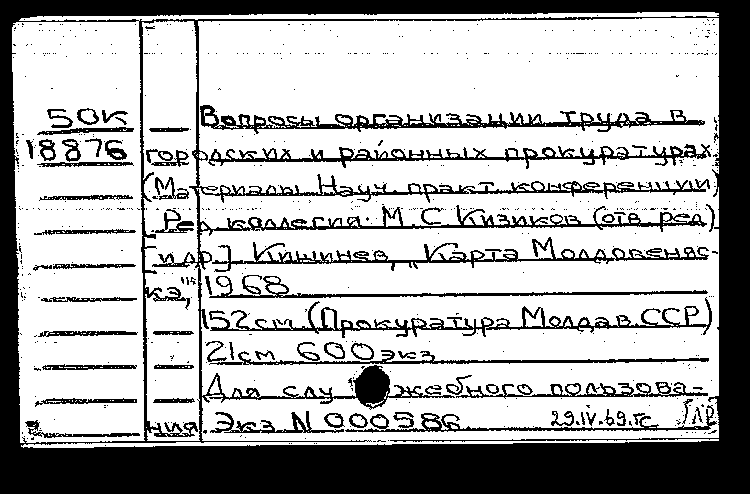 50К Вопросы организации труда в
18876 городских и районных прокуратурах
(Материалы Науч. практ. конференции)
Ред. коллегия: М. С. Кизиков (отв. ред)
[и др.] Кишинев, „Картя Молдовеняс-
кэ", 1968
152 см. (Прокуратура Молдав. ССР)
21 см. 600 экз
Для служебного пользова-
ния. Экз N 000586 29.IV.69.